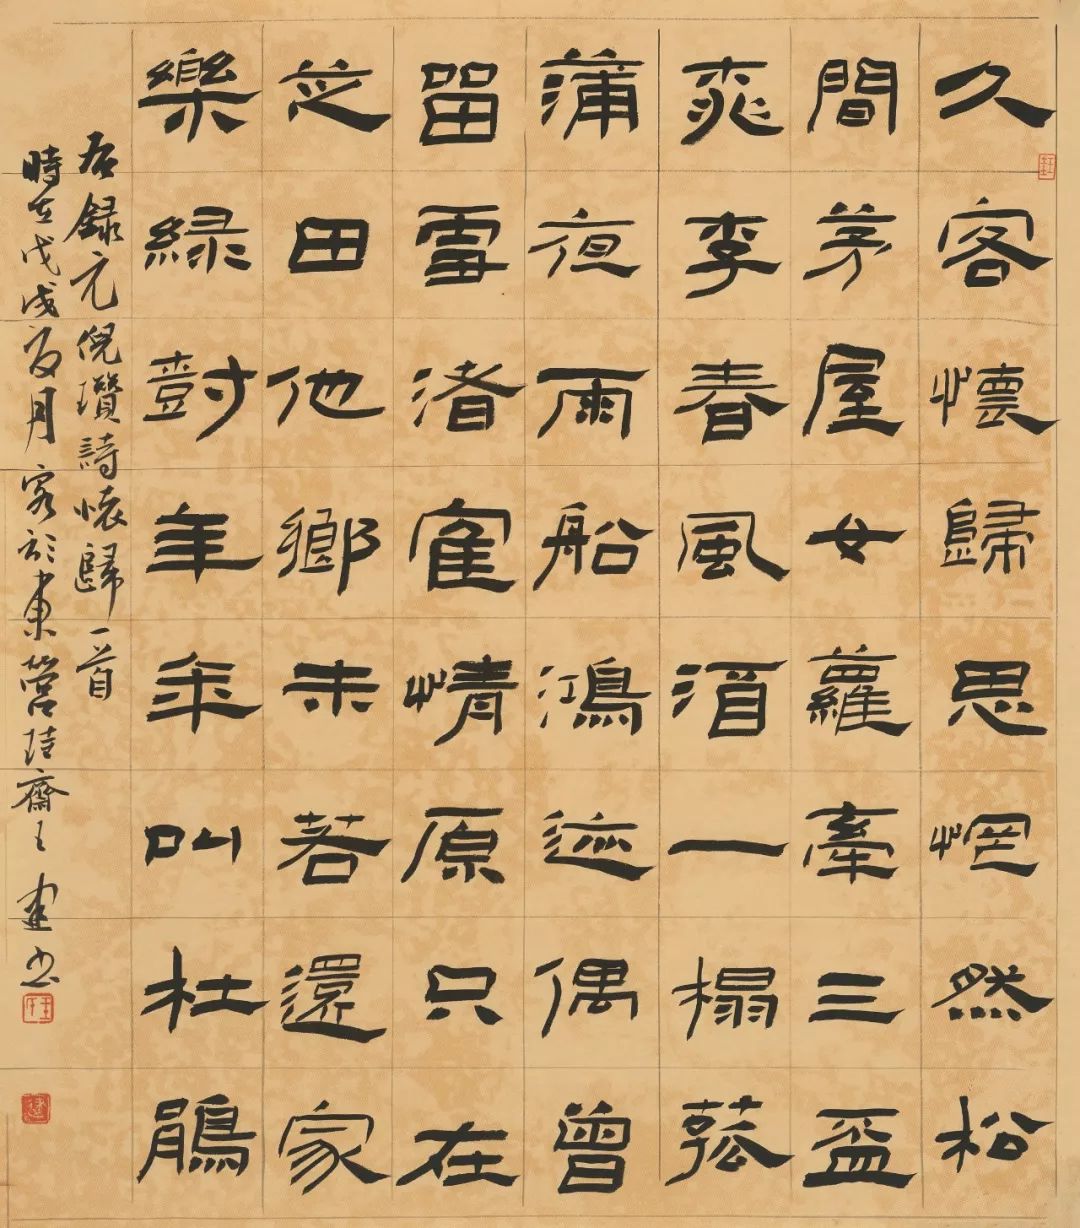 久客懷歸思惘然松
間茅屋女蘿牽三盃
桃李春風酒一榻菰
蒲夜雨船鴻迹偶曾
留雪渚隺情原只在
芝田他鄉未若還家
樂綠尌年年叫杜鵑
右錄元倪瓚詩懷歸一首
時在戊戌夏月客於東營珪齋建书